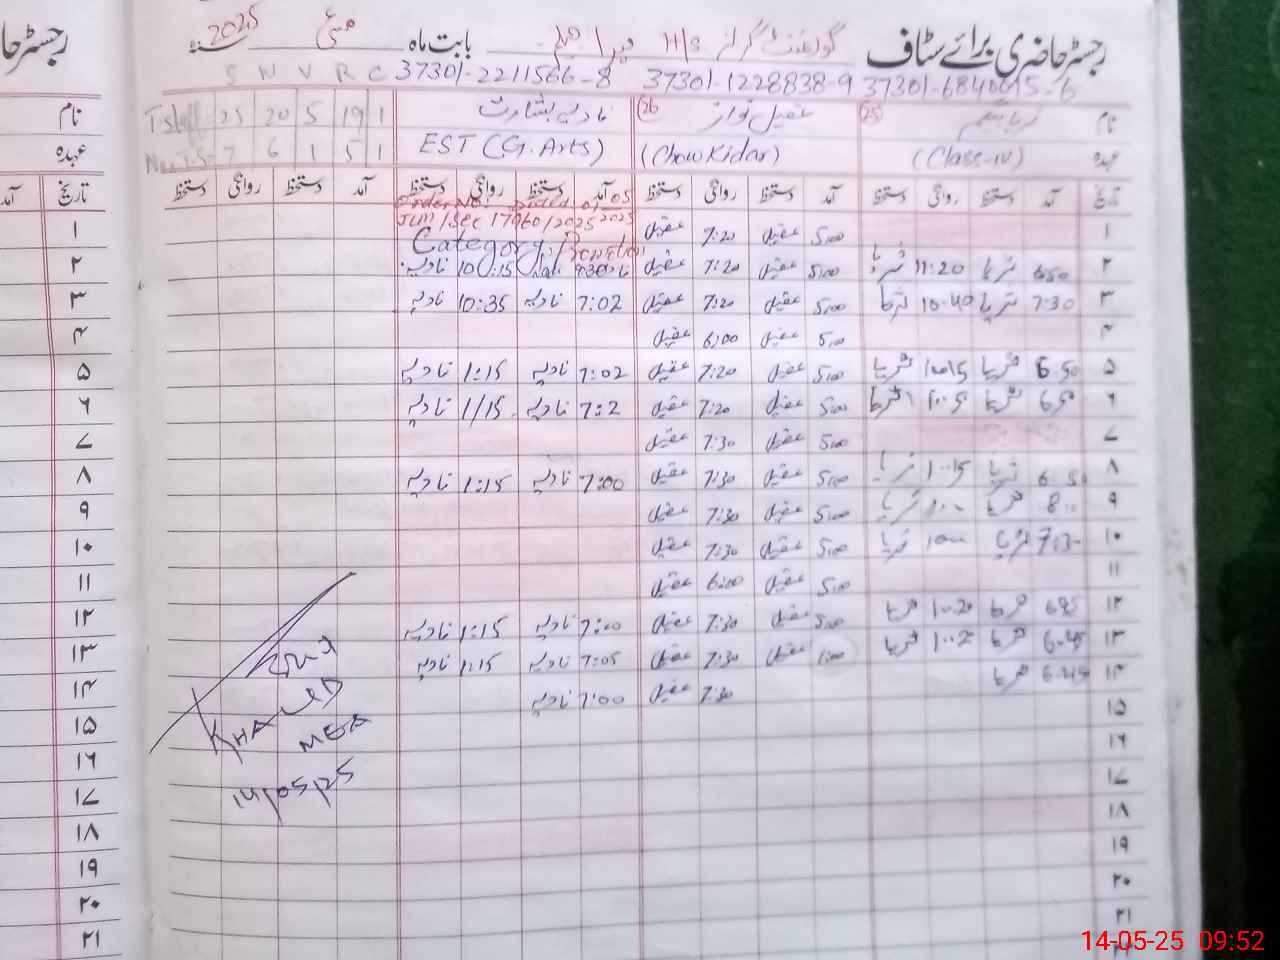 رجسٹر حاضری برائے سٹاف گورنمنٹ گرلز H/S بابت ماہ مئی 2025
S N V R C 37301-2211566-8 37301-1228838-9
نام 25 26 عقیل نواز نادیہ بشارت T.Staff= 25 20 5 19 1 نام
عہدہ (Class-IV) (Chowkidar) EST (G.Arts) 7 6 1 5 1 عہدہ
تاریخ آمد دستخط روانگی دستخط آمد دستخط روانگی دستخط آمد دستخط روانگی دستخط آمد دستخط روانگی دستخط تاریخ
Order No: Dated 01-05-2025
۱ 5:00 عقیل 7:20 عقیل Category: ۱
۲ 6:50 ثریا 11:20 ثریا 5:00 عقیل 7:20 عقیل نادیہ 10:15 نادیہ ۲
۳ 7:30 ثریا 10:40 ثریا 5:00 عقیل 7:20 عقیل 7:02 نادیہ 10:35 نادیہ ۳
۴ 5:00 عقیل 6:00 عقیل ۴
۵ 6:50 ثریا 10:15 ثریا 5:00 عقیل 7:20 عقیل 7:02 نادیہ 1:15 نادیہ ۵
۶ 6:50 ثریا ثریا 5:00 عقیل 7:20 عقیل 7:2 نادیہ 1/15 نادیہ ۶
۷ 5:00 عقیل 7:30 عقیل ۷
۸ 6:50 ثریا 10:15 ثریا 5:00 عقیل 7:30 عقیل 7:00 نادیہ 1:15 نادیہ ۸
۹ ثریا ثریا 5:00 عقیل 7:30 عقیل ۹
۱۰ 7:30 ثریا ثریا 5:00 عقیل 7:30 عقیل ۱۰
۱۱ 5:00 عقیل 6:00 عقیل ۱۱
۱۲ ثریا 10:20 ثریا 5:00 عقیل 7:30 عقیل 7:00 نادیہ 1:15 نادیہ ۱۲
۱۳ 6:45 ثریا ثریا عقیل 7:30 عقیل 7:05 نادیہ 1:15 نادیہ ۱۳
۱۴ 6:45 ثریا 7:30 عقیل 7:00 نادیہ ۱۴
۱۵ ۱۵
۱۶ ۱۶
۱۷ ۱۷
۱۸ ۱۸
۱۹ ۱۹
۲۰ ۲۰
۲۱ ۲۱
KHALID
MEA
14/05/25
14-05-25 09:52